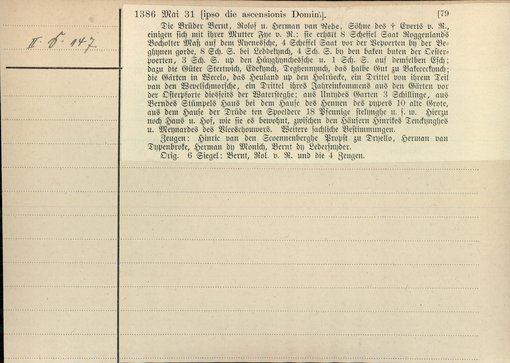 1386 Mai 31 [ipso die ascensionis Domini]. [79
Die Brüder Bernt, Rolof u. Herman van Rede, Söhne des † Everts v. R.,
einigen sich mit ihrer Mutter Fye v. R.: sie erhält 8 Scheffel Saat Roggenlands
Bocholter Maß auf dem Rynessche, 4 Scheffel Saat vor der Veporten by der Be-
ghynen gorde, 8 Sch. S. bei Leddekynch, 4 Sch. S. by den baken buten der Oester-
poerten, 3 Sch. S. up den und 1 Sch. S. auf demselben Esch;
dazu die Güter Steerwich, Edekynch, Deghennynch, das halbe Gut zu
die Gärten in Wecelo, das Heuland up den Holtrücke, ein Drittel von ihrem Teil
van den Bevelschmorsche, ein Drittel ihres Jahreinkommens aus den Gärten vor
der Osterpforte diesseits der Watersteghe; aus Untydes Garten 3 Schillinge, aus
Berndes Stümpels Haus bei dem Hause des Hennen des pypers 10 alte Grote,
aus dem Hause der Drüde ten Spoeldere 18 Pfennige u. s. w. Hierzu
noch Haus u. Hof, wie sie es bewohnt, zwischen den Häusern Hinrikes Tenckynghes
u. Meynardes des Vleeschouwers. Weitere sachliche Bestimmungen.
Zeugen: Hinric van den Propst zu Vrello, Herman van
Dypenbroke, Herman dy Monich, Bernt dy Ledersnyder.
Orig. 6 Siegel: Bernt, Rol. v. R. und die 4 Zeugen.
II 147